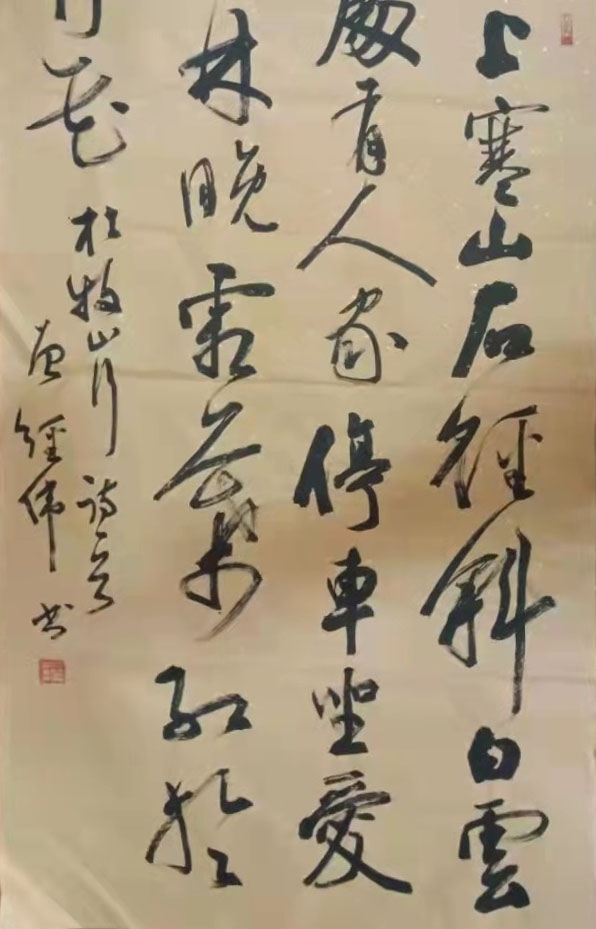 上寒山石徑斜白雲
處有人家停車坐愛
林晚霜葉紅於
月花
杜牧山行詩一首
經偉书